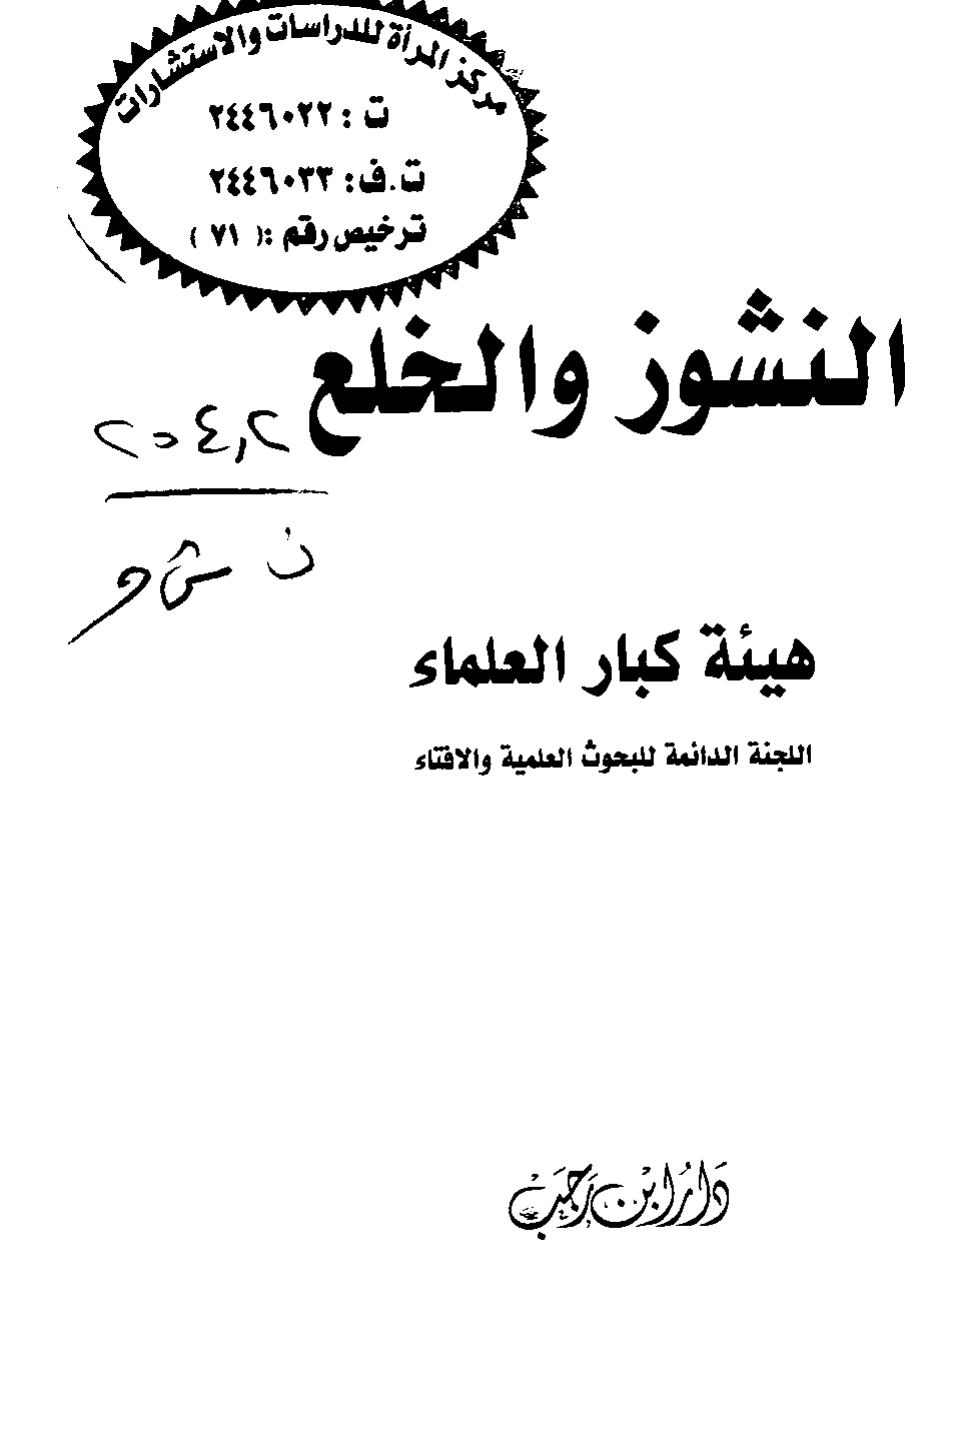 مركز المرأة للدراسات والاستشارات
ت : ٢٤٤٦٠٢٢
ت.ف: ٢٤٤٦٠٣٣
ترخيص رقم :( ٧١ )
النشوز والخلع
هيئة كبار العلماء
اللجنة الدائمة للبحوث العلمية والافتاء
دَارُ ابْن رَجَبْ